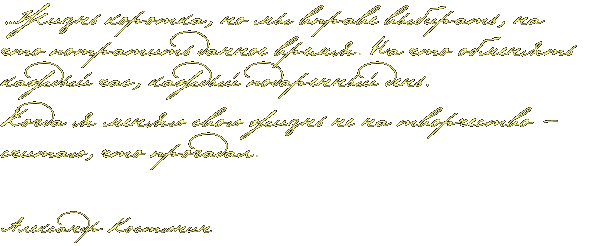 ...Жизнь коротка, но мы вправе выбирать, на
что потратить данное время. На что обменять
каждый час, каждый подаренный день.
Когда я меняю свою жизнь не на творчество –
считаю, что прогадал.
Александр Костюнин